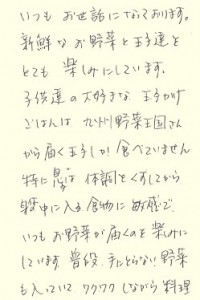 いつも お世話になっております。
新鮮なお野菜と玉子達を
とても 楽しみにしています。
子供達の大好きな 玉子かけ
ごはんは 九州野菜王国さん
から届く玉子しか食べていません
特に息子は 体調をくずしてから
体中に入る食物に敏感で、
いつもお野菜が届くのを楽しみに
しています 普段、手にとらない野菜
も入っていて ワクワクしながら料理